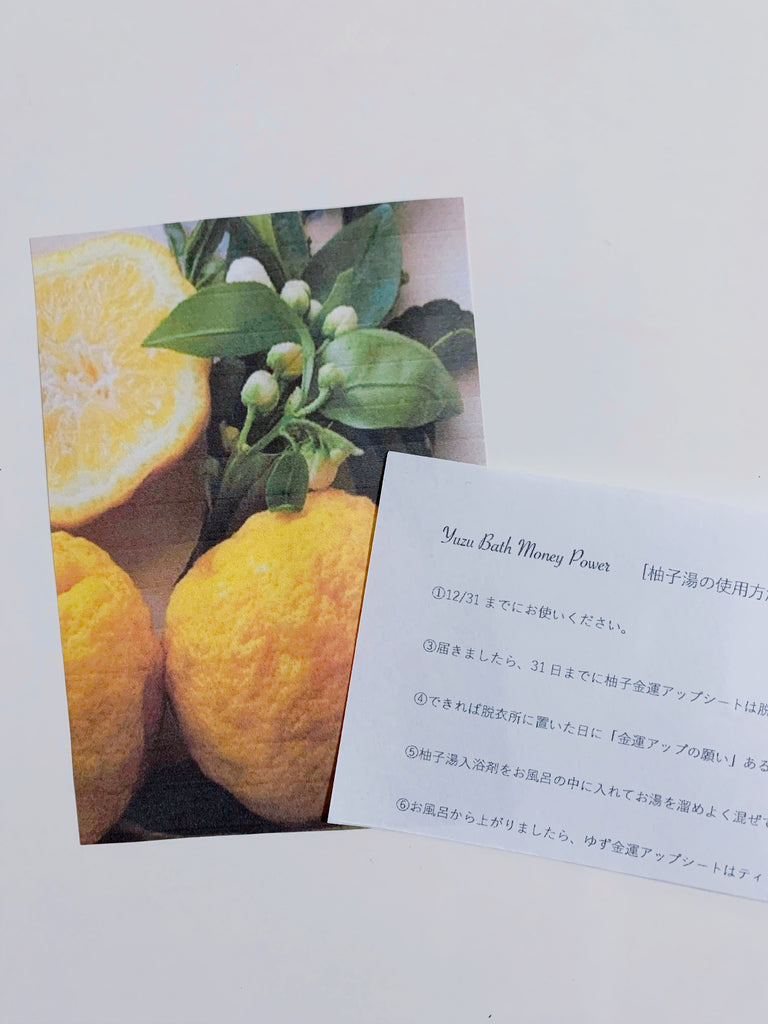 Yuzu Bath Money Power [柚子湯の使用方
①12/31 までにお使いください。
③届きましたら、31 日までに柚子金運アップシートは脱
④できれば脱衣所に置いた日に「金運アップの願い」ある
⑤柚子湯入浴剤をお風呂の中に入れてお湯を溜めよく混ぜ
⑥お風呂から上がりましたら、ゆず金運アップシートはティ